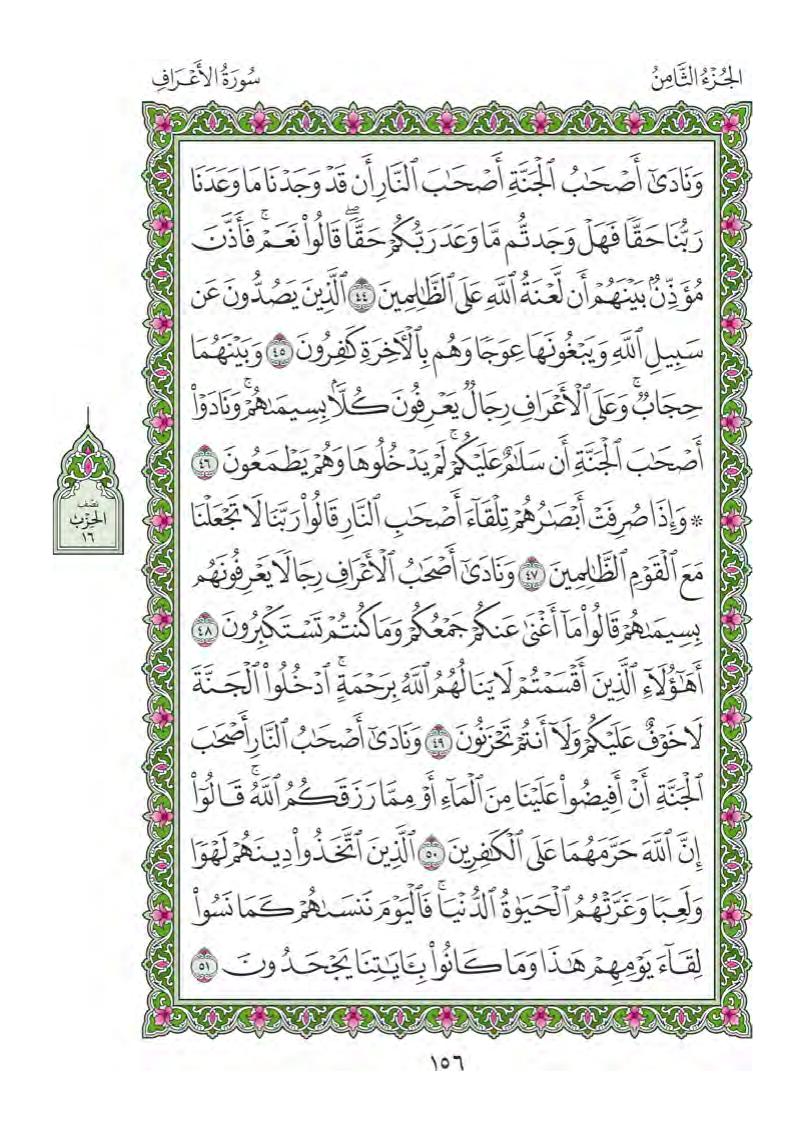 الجُزْءُ الثَّامِنُ
سُورَةُ الأَعْرَافِ
وَنَادَىٰٓ أَصْحَٰبُ ٱلْجَنَّةِ أَصْحَٰبَ ٱلنَّارِ أَن قَدْ وَجَدْنَا مَا وَعَدَنَا
رَبُّنَا حَقًّا فَهَلْ وَجَدتُّم مَّا وَعَدَ رَبُّكُمْ حَقًّا ۖ قَالُوا۟ نَعَمْ ۚ فَأَذَّنَ
مُؤَذِّنٌۢ بَيْنَهُمْ أَن لَّعْنَةُ ٱللَّهِ عَلَى ٱلظَّٰلِمِينَ ٤٤ ٱلَّذِينَ يَصُدُّونَ عَن
سَبِيلِ ٱللَّهِ وَيَبْغُونَهَا عِوَجًا وَهُم بِٱلْءَاخِرَةِ كَٰفِرُونَ ٤٥ وَبَيْنَهُمَا
حِجَابٌ ۚ وَعَلَى ٱلْأَعْرَافِ رِجَالٌ يَعْرِفُونَ كُلًّۢا بِسِيمَىٰهُمْ ۚ وَنَادَوْا۟
أَصْحَٰبَ ٱلْجَنَّةِ أَن سَلَٰمٌ عَلَيْكُمْ ۚ لَمْ يَدْخُلُوهَا وَهُمْ يَطْمَعُونَ ٤٦
۞ وَإِذَا صُرِفَتْ أَبْصَٰرُهُمْ تِلْقَآءَ أَصْحَٰبِ ٱلنَّارِ قَالُوا۟ رَبَّنَا لَا تَجْعَلْنَا
مَعَ ٱلْقَوْمِ ٱلظَّٰلِمِينَ ٤٧ وَنَادَىٰٓ أَصْحَٰبُ ٱلْأَعْرَافِ رِجَالًا يَعْرِفُونَهُم
بِسِيمَىٰهُمْ قَالُوا۟ مَآ أَغْنَىٰ عَنكُمْ جَمْعُكُمْ وَمَا كُنتُمْ تَسْتَكْبِرُونَ ٤٨
أَهَٰٓؤُلَآءِ ٱلَّذِينَ أَقْسَمْتُمْ لَا يَنَالُهُمُ ٱللَّهُ بِرَحْمَةٍ ۚ ٱدْخُلُوا۟ ٱلْجَنَّةَ
لَا خَوْفٌ عَلَيْكُمْ وَلَآ أَنتُمْ تَحْزَنُونَ ٤٩ وَنَادَىٰٓ أَصْحَٰبُ ٱلنَّارِ أَصْحَٰبَ
ٱلْجَنَّةِ أَنْ أَفِيضُوا۟ عَلَيْنَا مِنَ ٱلْمَآءِ أَوْ مِمَّا رَزَقَكُمُ ٱللَّهُ ۚ قَالُوٓا۟
إِنَّ ٱللَّهَ حَرَّمَهُمَا عَلَى ٱلْكَٰفِرِينَ ٥٠ ٱلَّذِينَ ٱتَّخَذُوا۟ دِينَهُمْ لَهْوًا
وَلَعِبًا وَغَرَّتْهُمُ ٱلْحَيَوٰةُ ٱلدُّنْيَا ۚ فَٱلْيَوْمَ نَنسَىٰهُمْ كَمَا نَسُوا۟
لِقَآءَ يَوْمِهِمْ هَٰذَا وَمَا كَانُوا۟ بِـَٔايَٰتِنَا يَجْحَدُونَ ٥١
نِصْف
الحِزْب
١٦
١٥٦